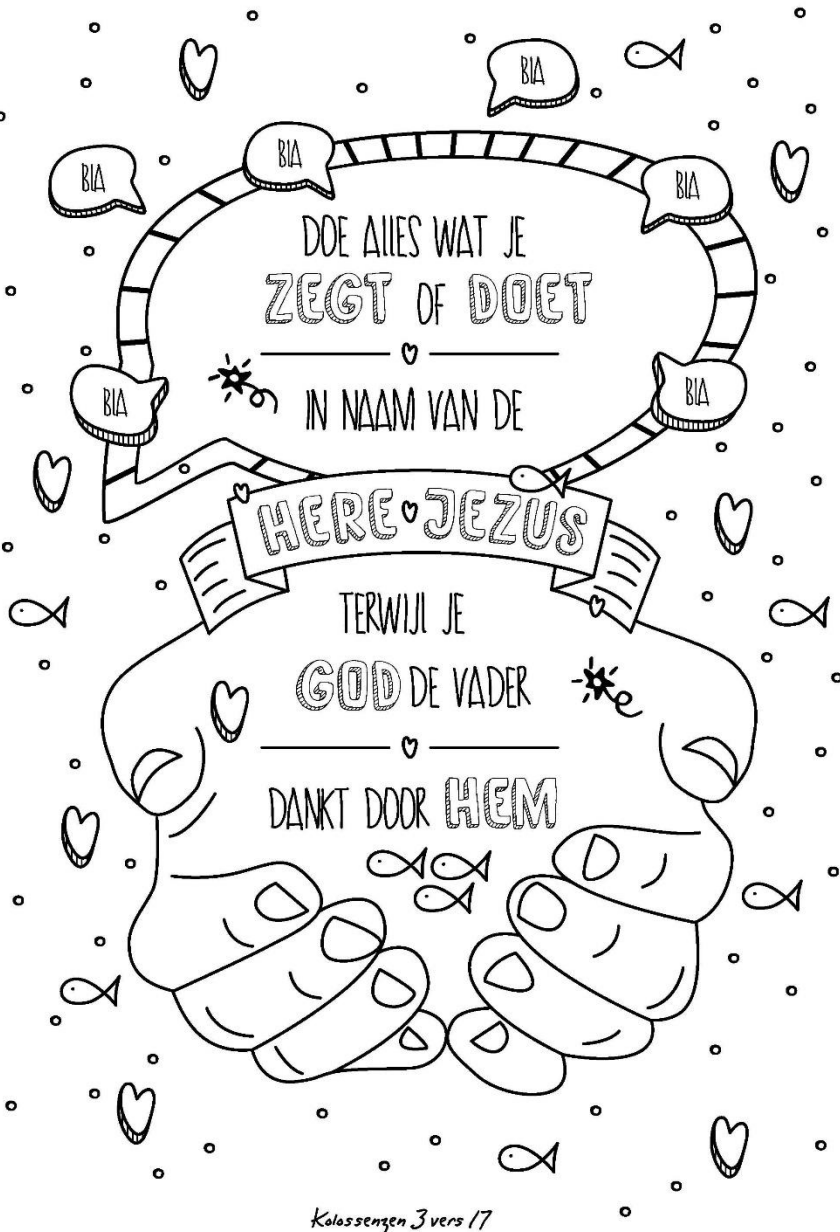 BLA
BLA
BLA
BLA
BLA
BLA
DOE ALLES WAT JE
ZEGT OF DOET
IN NAAM VAN DE
HERE JEZUS
TERWIJL JE
GOD DE VADER
DANKT DOOR HEM
Kolossenzen 3 vers 17